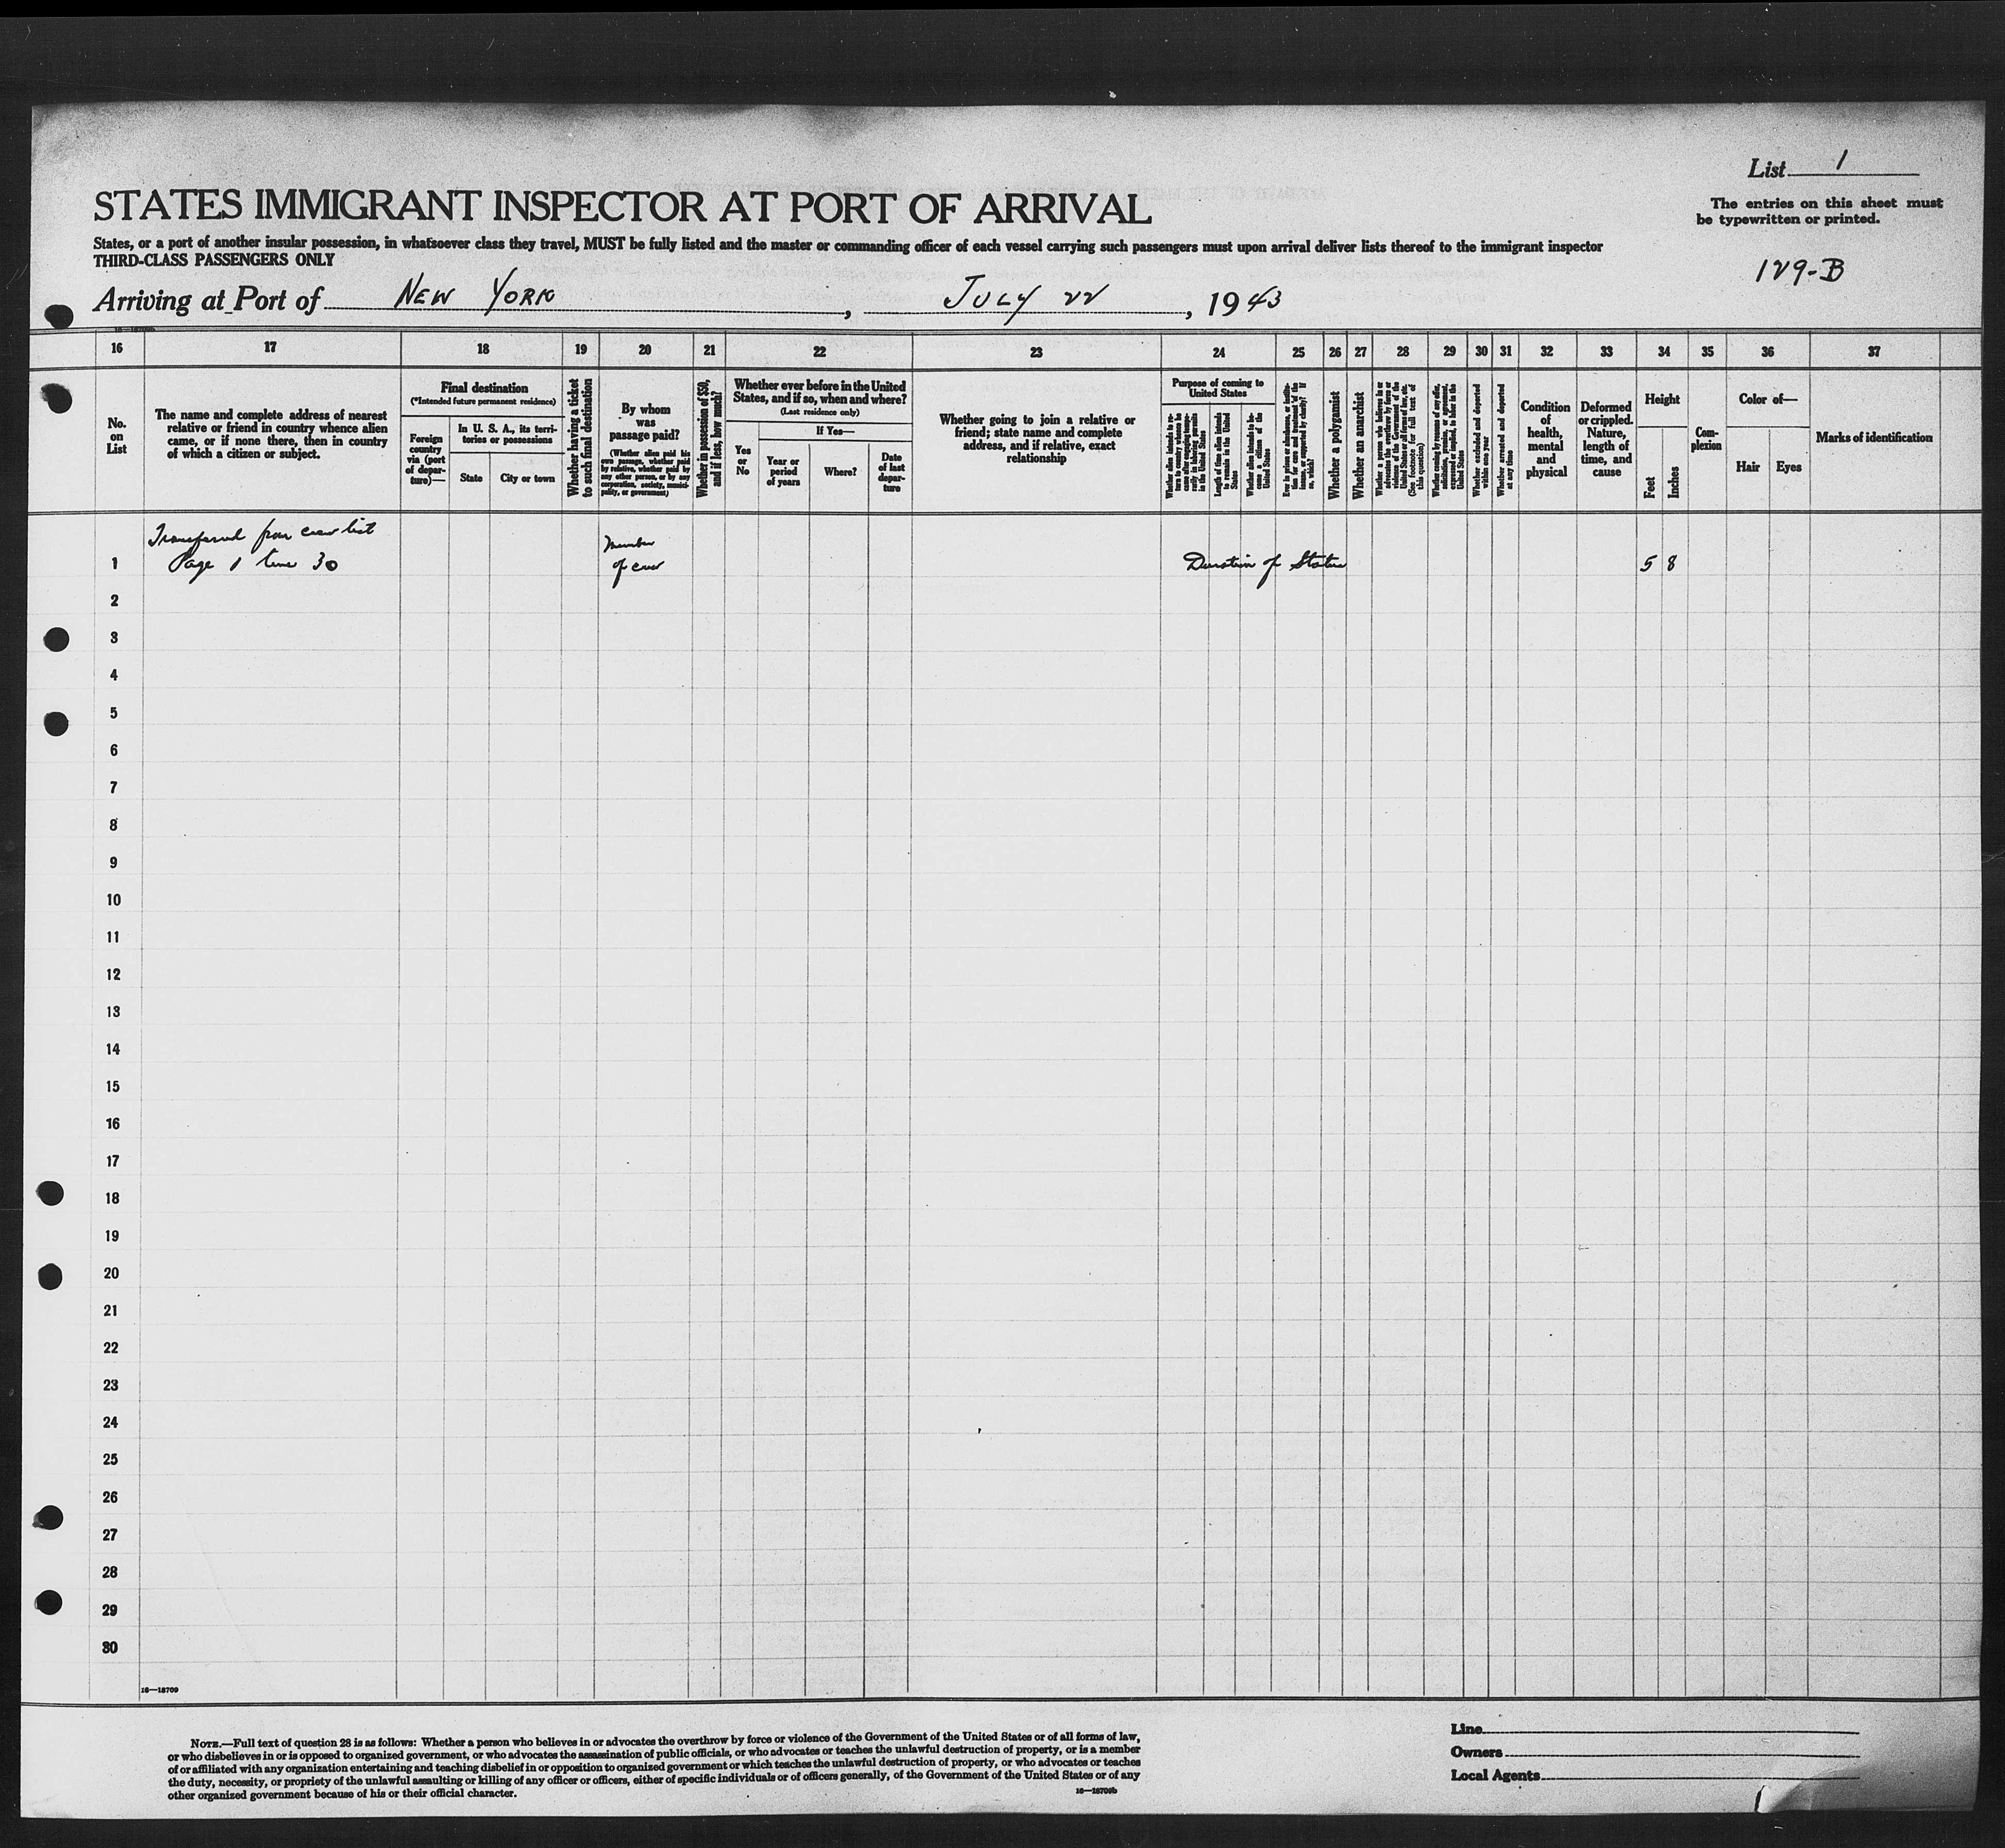 List 1
The entries on this sheet must
be typewritten or printed.
129-B
STATES IMMIGRANT INSPECTOR AT PORT OF ARRIVAL
States, or a port of another insular possession, in whatsoever class they travel, MUST be fully listed and the master or commanding officer of each vessel carrying such passengers must upon arrival deliver lists thereof to the immigrant inspector
THIRD-CLASS PASSENGERS ONLY
Arriving at Port of NEW YORK, JULY 22, 1943
16 17 18 19 20 21 22 23 24 25 26 27 28 29 30 31 32 33 34 35 36 37
No.
on
List
The name and complete address of nearest
relative or friend in country whence alien
came, or if none there, then in country
of which a citizen or subject.
Final destination
(*Intended future permanent residence)
Foreign
country
via (port
of depar-
ture)—
In U. S. A., its terri-
tories or possessions
State
City or town
Whether having a ticket
to such final destination
By whom
was
passage paid?
(Whether alien paid his
own passage, whether paid
by relative, whether paid by
any other person, or by any
corporation, society, munici-
pality, or government)
Whether in possession of $50,
and if less, how much?
Whether ever before in the United
States, and if so, when and where?
(Last residence only)
Yes
or
No
If Yes—
Year or
period
of years
Where?
Date
of last
depar-
ture
Whether going to join a relative or
friend; state name and complete
address, and if relative, exact
relationship
Purpose of coming to
United States
Whether alien intends to re-
turn to country whence he
came after engaging tempo-
rarily in laboring pursuits
in the United States
Length of time alien intends
to remain in the United
States
Whether alien intends to be-
come a citizen of the
United States
Ever in prison or almshouse, or institu-
tion for care and treatment of the
insane, or supported by charity? If
so, which?
Whether a polygamist
Whether an anarchist
Whether a person who believes in or
advocates the overthrow by force or
violence of the Government of the
United States or all forms of law, etc.
(See footnote for full text of
this question)
Whether coming by reasons of any offer,
solicitation, promise, or agreement,
expressed or implied, to labor in the
United States
Whether excluded and deported
within one year
Whether arrested and deported
at any time
Condition
of
health,
mental
and
physical
Deformed
or crippled.
Nature,
length of
time, and
cause
Height
Feet
Inches
Com-
plexion
Color of—
Hair
Eyes
Marks of identification
Transferred from crew list
Member
1 Page 1 line 30 of crew Duration of Status 5 8
2
3
4
5
6
7
8
9
10
11
12
13
14
15
16
17
18
19
20
21
22
23
24
25
26
27
28
29
30
16—18709
NOTE.—Full text of question 28 is as follows: Whether a person who believes in or advocates the overthrow by force or violence of the Government of the United States or of all forms of law,
or who disbelieves in or is opposed to organized government, or who advocates the assassination of public officials, or who advocates or teaches the unlawful destruction of property, or is a member
of or affiliated with any organization entertaining and teaching disbelief in or opposition to organized government or which teaches the unlawful destruction of property, or who advocates or teaches
the duty, necessity, or propriety of the unlawful assaulting or killing of any officer or officers, either of specific individuals or of officers generally, of the Government of the United States or of any
other organized government because of his or their official character.
16—18709b
Line
Owners
Local Agents